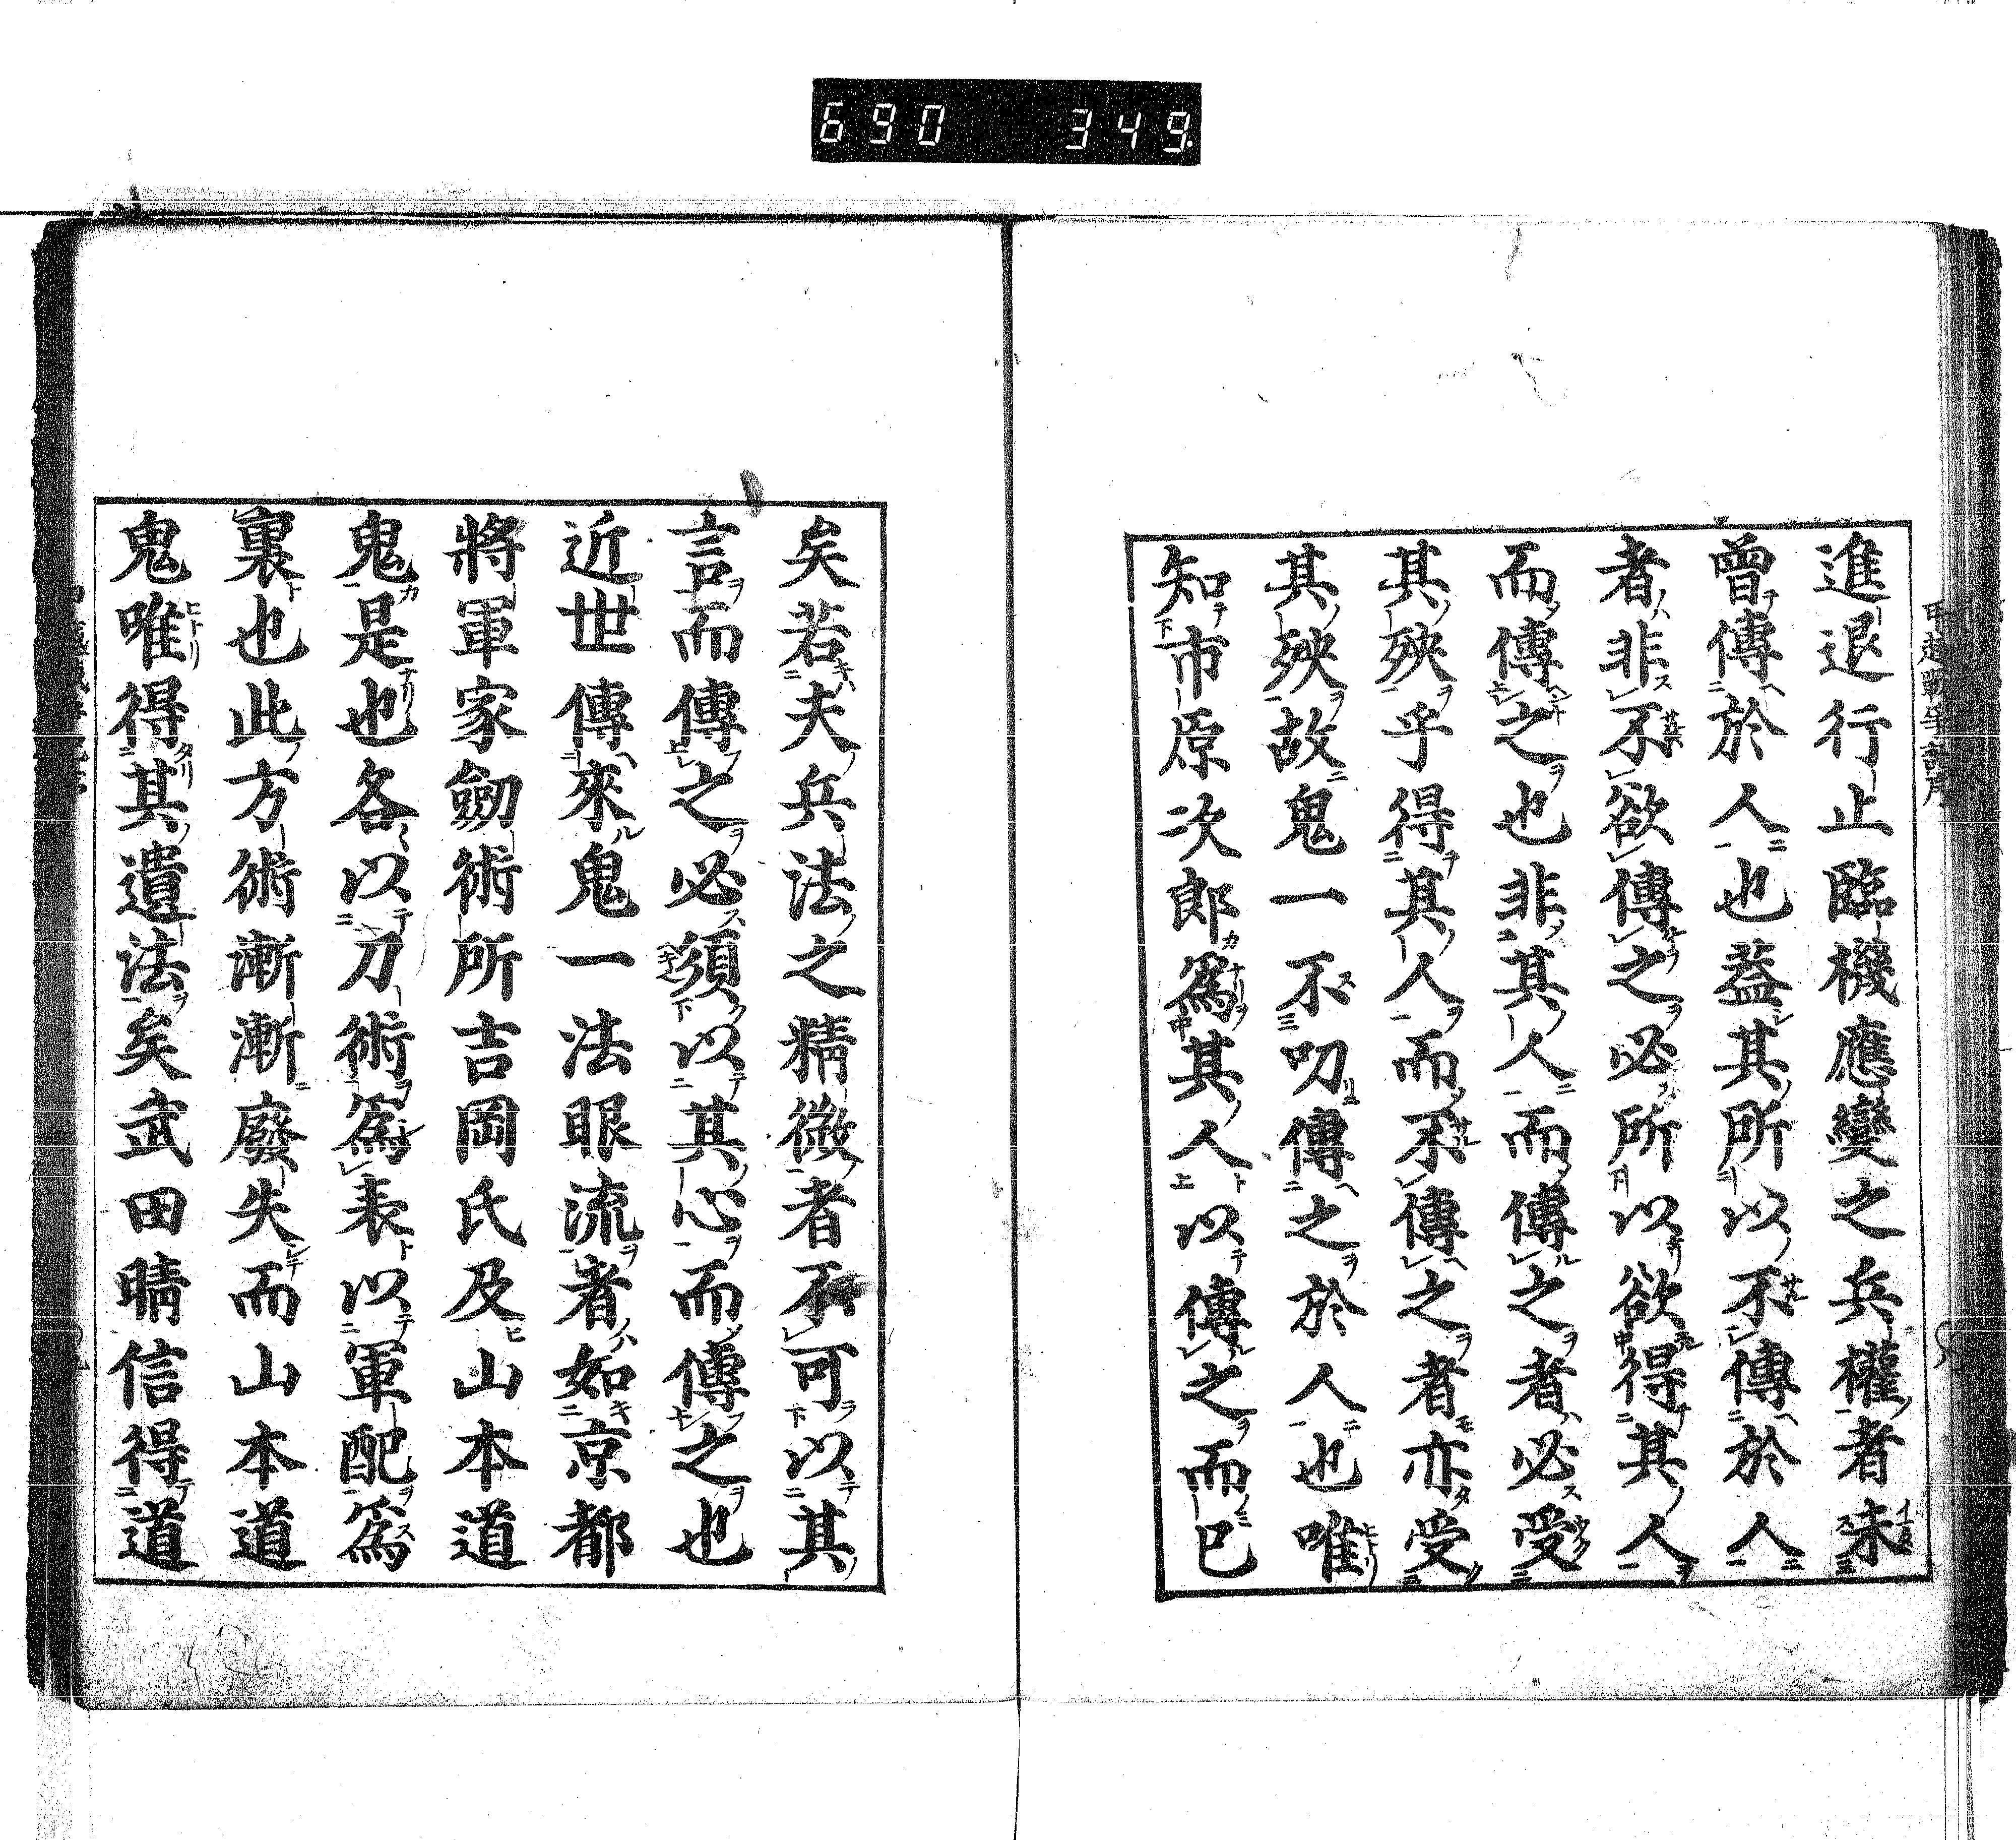 690 349
進退行止臨機應變之兵權者未
曾傳於人也蓋其所以不傳於人
者非不欲傳之必所以欲得其人
而傳之也非其人而傳之者必受
其殃乎得其人而不傳之者亦受
其殃故鬼一不叨傳之於人也唯
知市原次郎爲其人以傳之而已
矣若夫兵法之精微者不可以其
言而傳之必須以其心而傳之也
近世傳來鬼一法眼流者如京都
將軍家劒術所吉岡氏及山本道
鬼是也各以刀術爲表以軍配爲
裏也此方術漸漸廢失而山本道
鬼唯得其遺法矣武田晴信得道